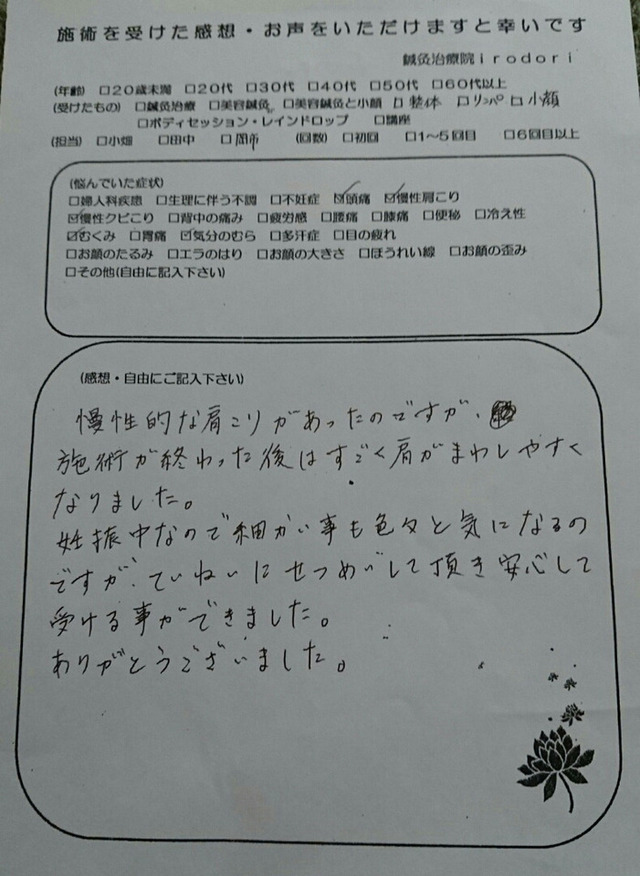 施術を受けた感想・お声をいただけますと幸いです
鍼灸治療院irodori
(年齢) □20歳未満 □20代 □30代 □40代 □50代 □60代以上
(受けたもの) □鍼灸治療 □美容鍼灸 □美容鍼灸と小顔 □整体 □リンパ □小顔
□ボディセッション・レインドロップ □講座
(担当) □小畑 □田中 □岡市 (回数) □初回 □1〜5回目 □6回目以上
(悩んでいた症状)
□婦人科疾患 □生理に伴う不調 □不妊症 ☑頭痛 ☑慢性肩こり
☑慢性クビこり □背中の痛み □疲労感 □腰痛 □膝痛 □便秘 □冷え性
☑むくみ □胃痛 ☑気分のむら □多汗症 □目の疲れ
□お顔のたるみ □エラのはり □お顔の大きさ □ほうれい線 □お顔の歪み
□その他(自由に記入下さい)
(感想・自由にご記入下さい)
慢性的な肩こりがあったのですが、
施術が終わった後はすごく肩がまわしやすく
なりました。
妊振中なので細かい事も色々と気になるの
ですが、ていねいにせつめいして頂き安心して
受ける事ができました。
ありがとうございました。